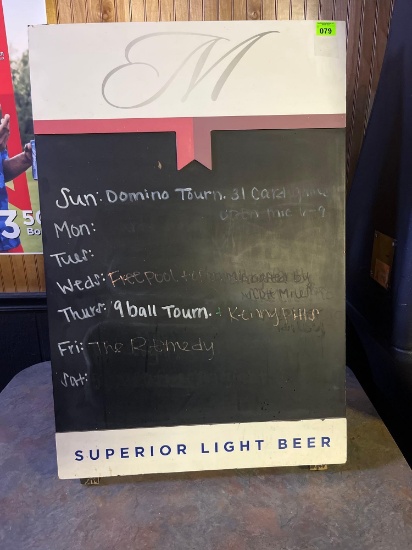 M
079
Sun: Domino Tourn. 31 Card
open mic 6-9
Mon:
Tues:
Weds: Free pool + by
Scott
Thurs: 9 ball Tourn. + Kenny
Fri: The Remedy
Sat:
SUPERIOR LIGHT BEER
3 50
Bo